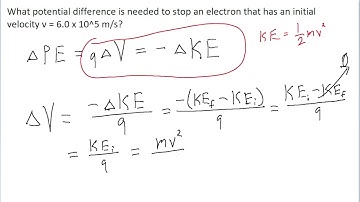 What potential difference is needed to stop an electron that has an initial
velocity v = 6.0 x 10^5 m/s?
KE = 1/2 mv²
ΔPE = qΔV = -ΔKE
ΔV = -ΔKE/q = -(KEf - KEi)/q = KEi - KEf/q
0
= KEi/q = mv²